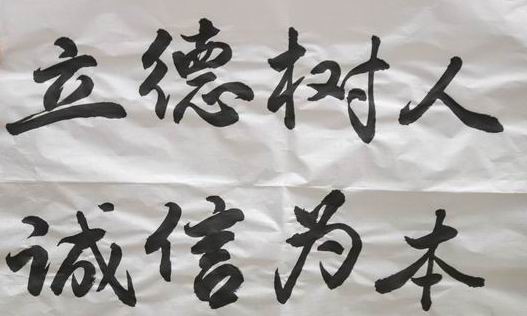 立德树人
诚信为本